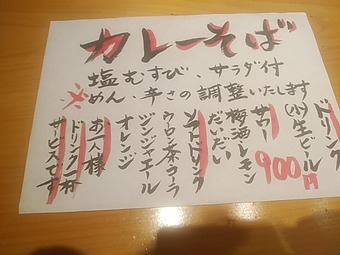 カレーそば
塩むすび、サラダ付
※めん、辛さの調整いたします
ドリンク
(小)生ビール
サワー
梅酒・レモン
だいだい
ソフトドリンク
ウーロン茶・コーラ
ジンジャエール
オレンジ
お一人様
ドリンク一杯
サービスです
900円